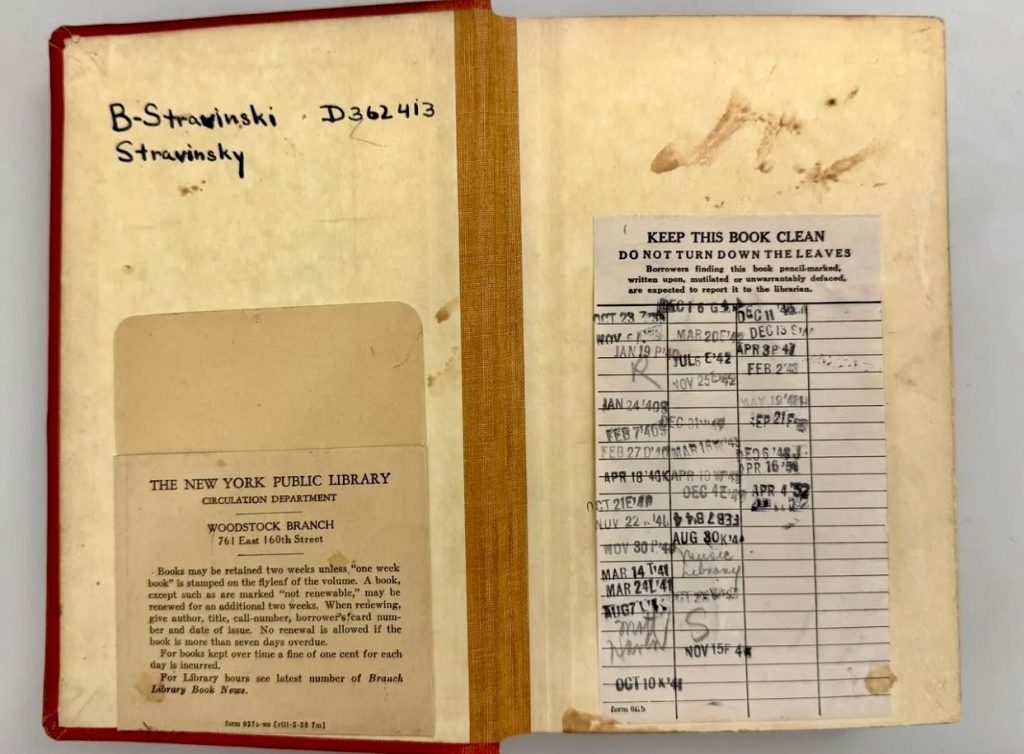 B-Stravinski D362413
Stravinsky
THE NEW YORK PUBLIC LIBRARY
CIRCULATION DEPARTMENT
WOODSTOCK BRANCH
761 East 160th Street
Books may be retained two weeks unless "one week
book" is stamped on the flyleaf of the volume. A book,
except such as are marked "not renewable," may be
renewed for an additional two weeks. When renewing,
give author, title, call-number, borrower's card num-
ber and date of issue. No renewal is allowed if the
book is more than seven days overdue.
For books kept over time a fine of one cent for each
day is incurred.
For Library hours see latest number of Branch
Library Book News.
form 027a-wo [viii-5-38 7m]
KEEP THIS BOOK CLEAN
DO NOT TURN DOWN THE LEAVES
Borrowers finding this book pencil-marked,
written upon, mutilated or unwarrantably defaced,
are expected to report it to the librarian.
OCT 23
NOV
JAN 19
R
JAN 24 '40S
FEB 7 '40S
FEB 27 D'40
APR 18 '40K
OCT 21E'40
NOV 22
NOV 30 P'40
MAR 14 T'41
MAR 24L'41
AUG 7
Mott
Haven
OCT 10 K'41
DEC 16
MAR 20E'42
JUL 6 E'42
NOV 25E'42
DEC 31
MAR 16 W'43
APR 10 W'43
DEC 4E'43
FEB 7 B 44
AUG 30K'44
Music
Library
S
NOV 15F
DEC 11
DEC 13
APR 3P'47
FEB 2
MAY 19
SEP 21F
DEC 6
APR 16
APR 4 '52
form